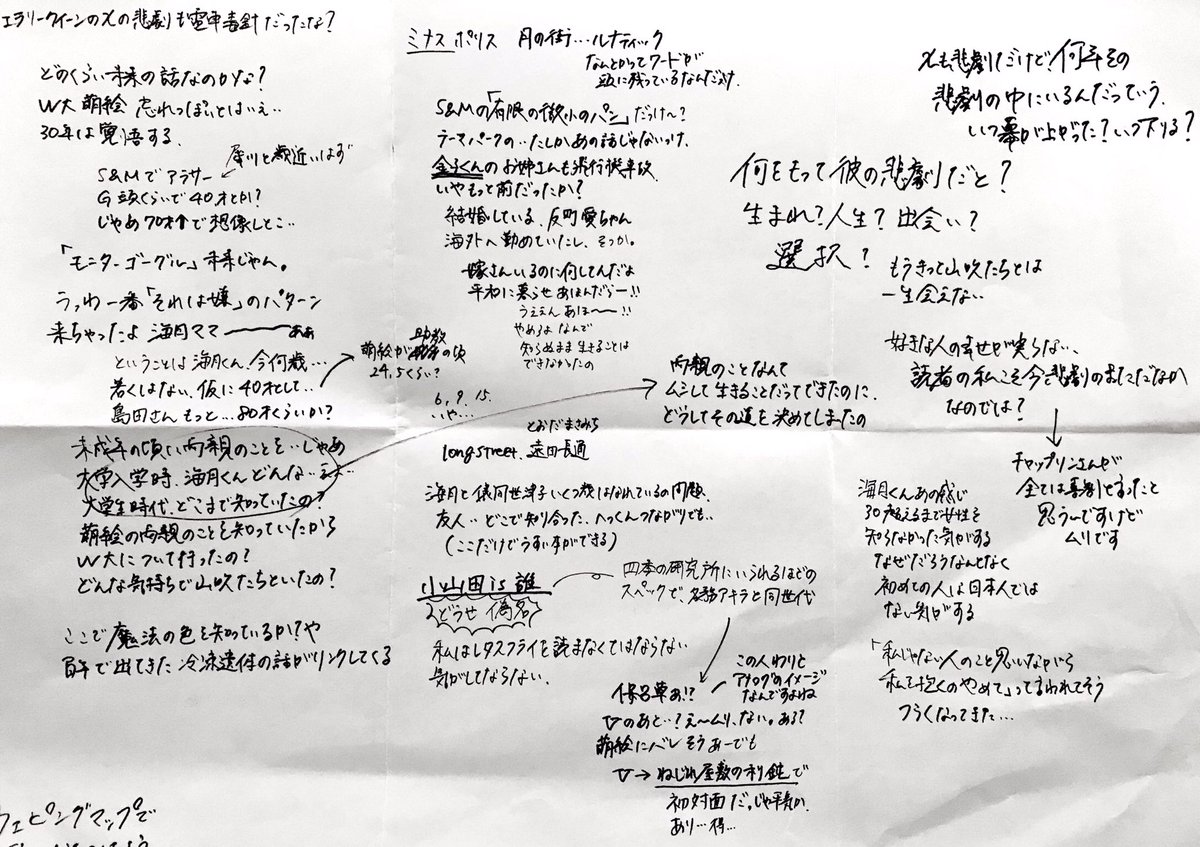 エラリークイーンのXの悲劇も電車毒針だったな?
どのくらい未来の話なのかな?
W大 萌絵 忘れっぽいとはいえ..
30年は覚悟する.
犀川と歳近いはず
S&Mでアラサー
G 頭くらいで40才とか?
じゃあ70才↑で想像しとこ…
「モニターゴーグル」未来じゃん。
うっわ一番「それは嫌」のパターン
来ちゃったよ 海月ママ―――ぁぁ
ということは海月くん、今何歳…
若くはない、仮に40才として..
島田さんもっと…80才くらいか?
萌絵が助教の頃
24,5くらい?
未成年の頃に両親のことを…じゃあ
大学入学時、海月くんどんな
大学生時代、どこまで知っていたの?
萌絵の両親のことを知っていたから
W大について行ったの?
どんな気持ちで山吹たちといたの?
ここで魔法の色を知っているか?や
百年で出てきた冷凍遺体の話がリンクしてくる
ウェピングマップで
ミナス ポリス 月の街…ルナティック
なんとかってワードが
頭に残っているなんだっけ.
S&Mの「有限の微小のパン」だっけ〜?
テーマパークの..たしかあの話じゃないっけ.
金子くんのお姉さんも飛行機事故.
いやもっと前だったか?
結婚している、反町愛ちゃん
海外へ勤めていたし、そっか。
嫁さんいるのに何してんだよ
平和に暮らせあほんだらー!!
うええん あほ〜〜!!
やめろよ なんで
知らぬまま生きることは
できなかったの
6.9.15.
いや…
とおだまさみち
long street、遠田長通
両親のことなんて
ムシして生きることだってできたのに、
どうしてその道を決めてしまったの
海月と俵同世津子いくつ歳はなれているの問題、
友人…どこで知り合った、へっくんつながりでも..
(ここだけでうすい本ができる)
小山田is誰
どうせ偽名
四季の研究所にいられるほどの
スペックで、各務アキラと同世代
私はレタスフライを読まなくてはならない
気がしてならない.
保呂草ぁ!?
この人わりと
アナログのイメージ
なんですよね
Vのあと…?え〜ムリ、ない。ある?
萌絵にバレそうあーでも
V→ねじれ屋敷の利鈍で
初対面だ、じゃ平気か.
あり…得…
Xも悲劇だけど、何年その
悲劇の中にいるんだっていう.
いつ幕が上がった?いつ下りる?
何をもって彼の悲劇だと?
生まれ?人生?出会い?
選択?
もうきっと山吹たちとは
一生会えない
好きな人の幸せが実らない、
読者の私こそ今も悲劇のまっただなか
なのでは?
チャップリンさんが
全ては喜劇と言ったと
思うんですけど
ムリです
海月くんあの感じ
30超えるまで女性を
知らなかった気がする
なぜだろうなんとなく
初めての人は日本人では
ない気がする
「私じゃない人のこと思いながら
私を抱くのやめて」って言われてそう
つらくなってきた…